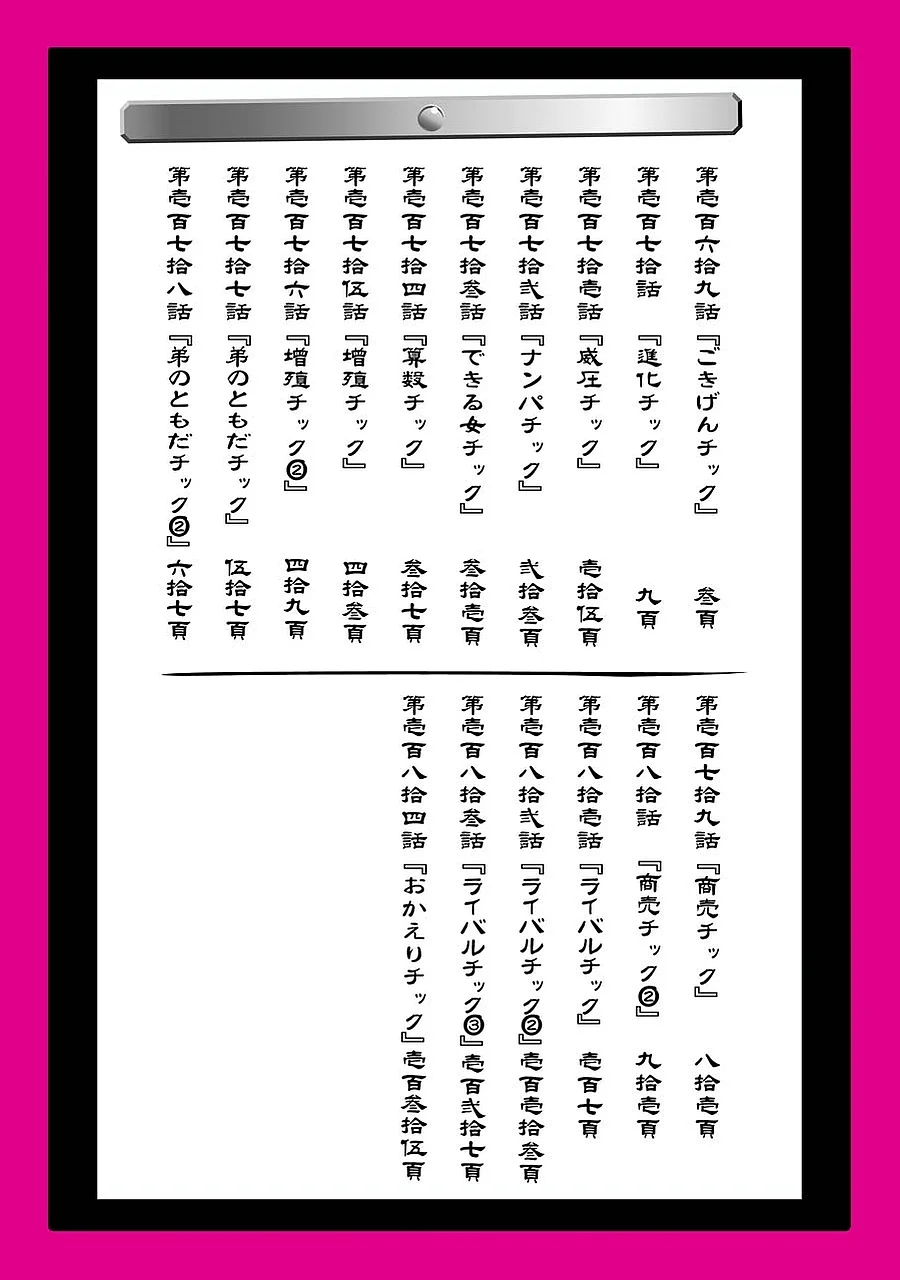 第壱百六拾九話『ごきげんチック』 叁頁
第壱百七拾話『進化チック』 九頁
第壱百七拾壱話『威圧チック』 壱拾伍頁
第壱百七拾弐話『ナンパチック』 弐拾叁頁
第壱百七拾叁話『できる女チック』 叁拾壱頁
第壱百七拾四話『算数チック』 叁拾七頁
第壱百七拾伍話『増殖チック』 四拾叁頁
第壱百七拾六話『増殖チック②』 四拾九頁
第壱百七拾七話『弟のともだチック』 伍拾七頁
第壱百七拾八話『弟のともだチック②』 六拾七頁
第壱百七拾九話『商売チック』 八拾壱頁
第壱百八拾話『商売チック②』 九拾壱頁
第壱百八拾壱話『ライバルチック』 壱百七頁
第壱百八拾弐話『ライバルチック②』 壱百壱拾叁頁
第壱百八拾叁話『ライバルチック③』 壱百弐拾七頁
第壱百八拾四話『おかえりチック』 壱百叁拾伍頁